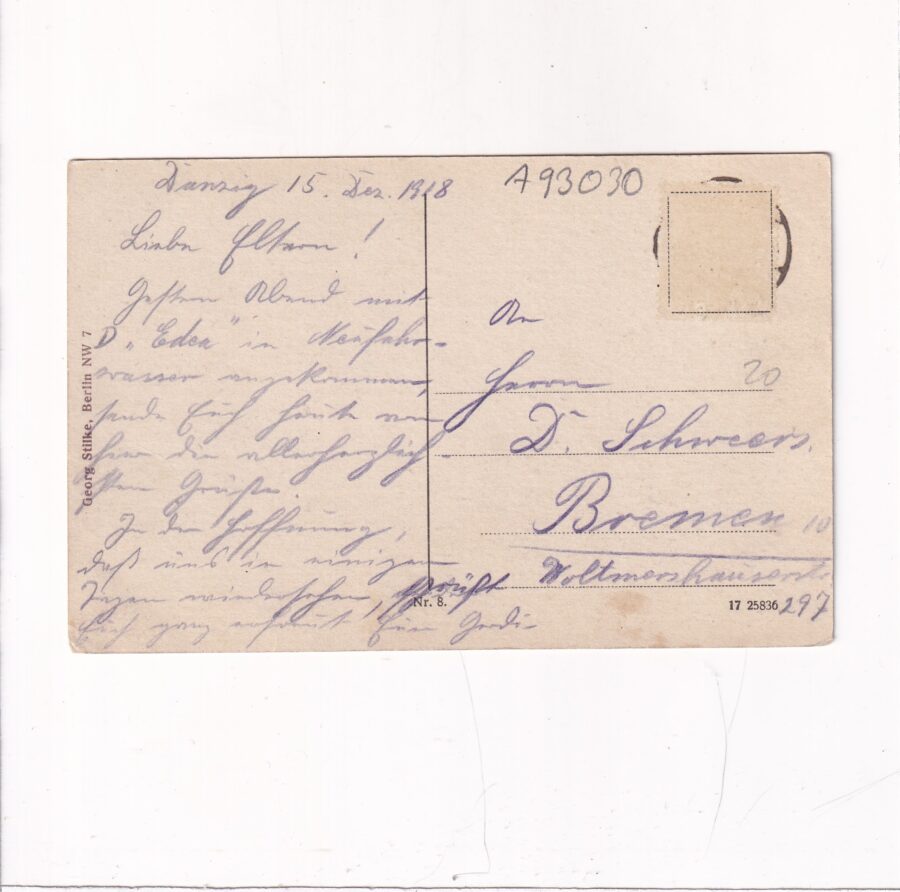 Danzig 15. Dez. 1918
Liebe Eltern!
Gestern Abend mit
D „Edea" in Neufahr-
wasser angekommen,
sende Euch heute von
hier die allerherzlich-
sten Grüße.
In der Hoffnung,
daß uns in einigen
Tagen wiedersehen, grüßt
Euch ganz Euer
A93030
An
Herrn
D. Schweers.
Bremen 10
Woltmershauserstr.
297
20
Georg Stilke, Berlin NW 7
Nr. 8.
17 25836